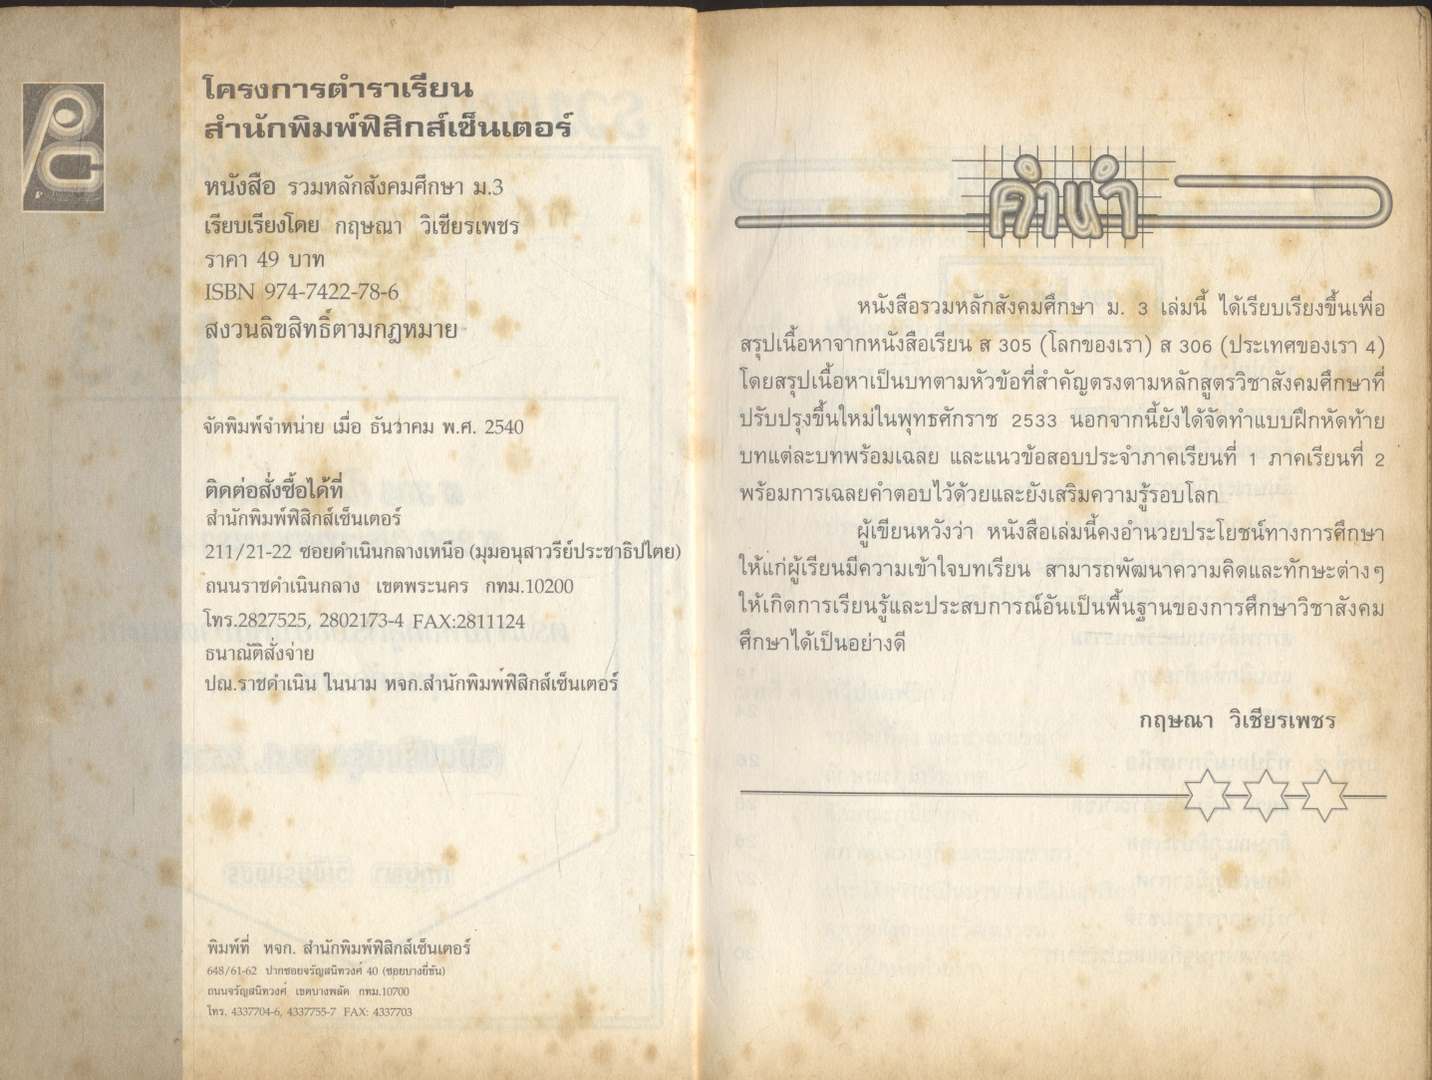 โครงการตำราเรียน
สำนักพิมพ์ฟิสิกส์เซ็นเตอร์
หนังสือ รวมหลักสังคมศึกษา ม.3
เรียบเรียงโดย กฤษณา วิเชียรเพชร
ราคา 49 บาท
ISBN 974-7422-78-6
สงวนลิขสิทธิ์ตามกฎหมาย
จัดพิมพ์จำหน่าย เมื่อ ธันวาคม พ.ศ. 2540
ติดต่อสั่งซื้อได้ที่
สำนักพิมพ์ฟิสิกส์เซ็นเตอร์
211/21-22 ซอยดำเนินกลางเหนือ (มุมอนุสาวรีย์ประชาธิปไตย)
ถนนราชดำเนินกลาง เขตพระนคร กทม.10200
โทร.2827525, 2802173-4 FAX:2811124
ธนาณัติสั่งจ่าย
ปณ.ราชดำเนิน ในนาม หจก.สำนักพิมพ์ฟิสิกส์เซ็นเตอร์
พิมพ์ที่ หจก. สำนักพิมพ์ฟิสิกส์เซ็นเตอร์
648/61-62 ปากซอยจรัญสนิทวงศ์ 40 (ซอยบางยี่ขัน)
ถนนจรัญสนิทวงศ์ เขตบางพลัด กทม.10700
โทร. 4337704-6, 4337755-7 FAX: 4337703
คำนำ
หนังสือรวมหลักสังคมศึกษา ม. 3 เล่มนี้ ได้เรียบเรียงขึ้นเพื่อ
สรุปเนื้อหาจากหนังสือเรียน ส 305 (โลกของเรา) ส 306 (ประเทศของเรา 4)
โดยสรุปเนื้อหาเป็นบทตามหัวข้อที่สำคัญตรงตามหลักสูตรวิชาสังคมศึกษาที่
ปรับปรุงขึ้นใหม่ในพุทธศักราช 2533 นอกจากนี้ยังได้จัดทำแบบฝึกหัดท้าย
บทแต่ละบทพร้อมเฉลย และแนวข้อสอบประจำภาคเรียนที่ 1 ภาคเรียนที่ 2
พร้อมการเฉลยคำตอบไว้ด้วยและยังเสริมความรู้รอบโลก
ผู้เขียนหวังว่า หนังสือเล่มนี้คงอำนวยประโยชน์ทางการศึกษา
ให้แก่ผู้เรียนมีความเข้าใจบทเรียน สามารถพัฒนาความคิดและทักษะต่างๆ
ให้เกิดการเรียนรู้และประสบการณ์อันเป็นพื้นฐานของการศึกษาวิชาสังคม
ศึกษาได้เป็นอย่างดี
กฤษณา วิเชียรเพชร